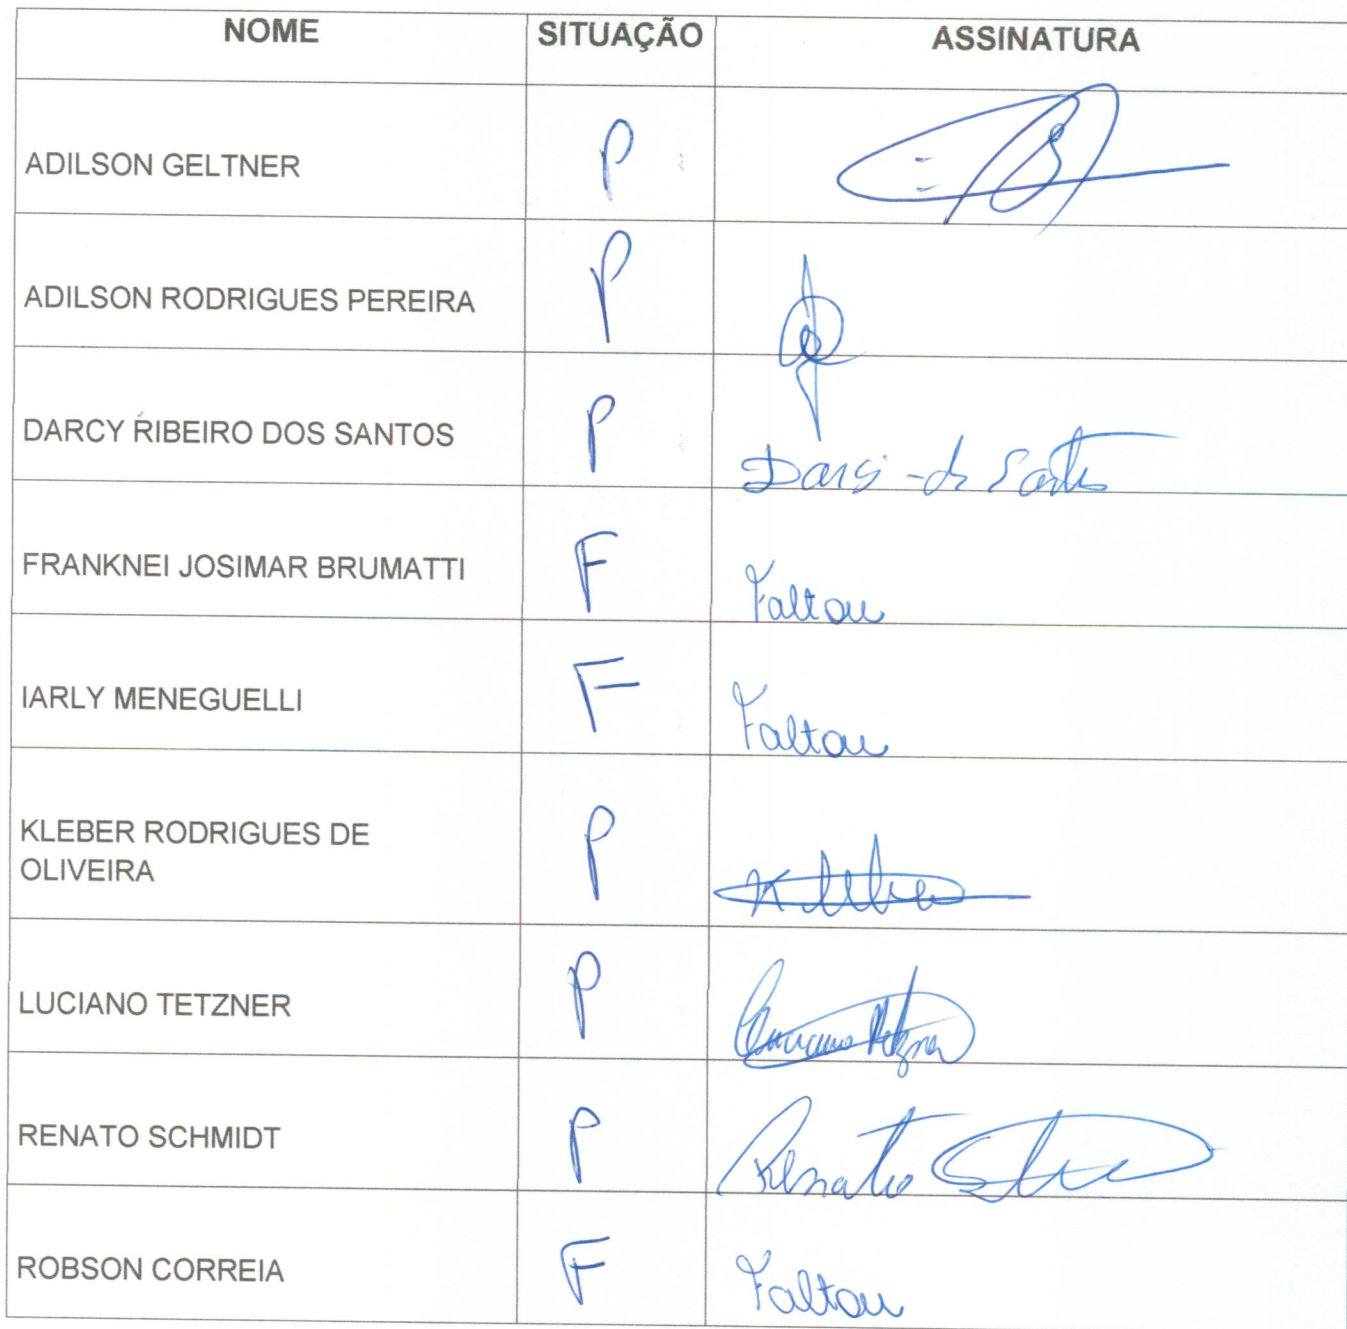 NOME SITUAÇÃO ASSINATURA
ADILSON GELTNER P
ADILSON RODRIGUES PEREIRA P
DARCY RIBEIRO DOS SANTOS P
FRANKNEI JOSIMAR BRUMATTI F Faltou
IARLY MENEGUELLI F Faltou
KLEBER RODRIGUES DE
OLIVEIRA P
LUCIANO TETZNER P Luciano Tetzner
RENATO SCHMIDT P Renato
ROBSON CORREIA F Faltou